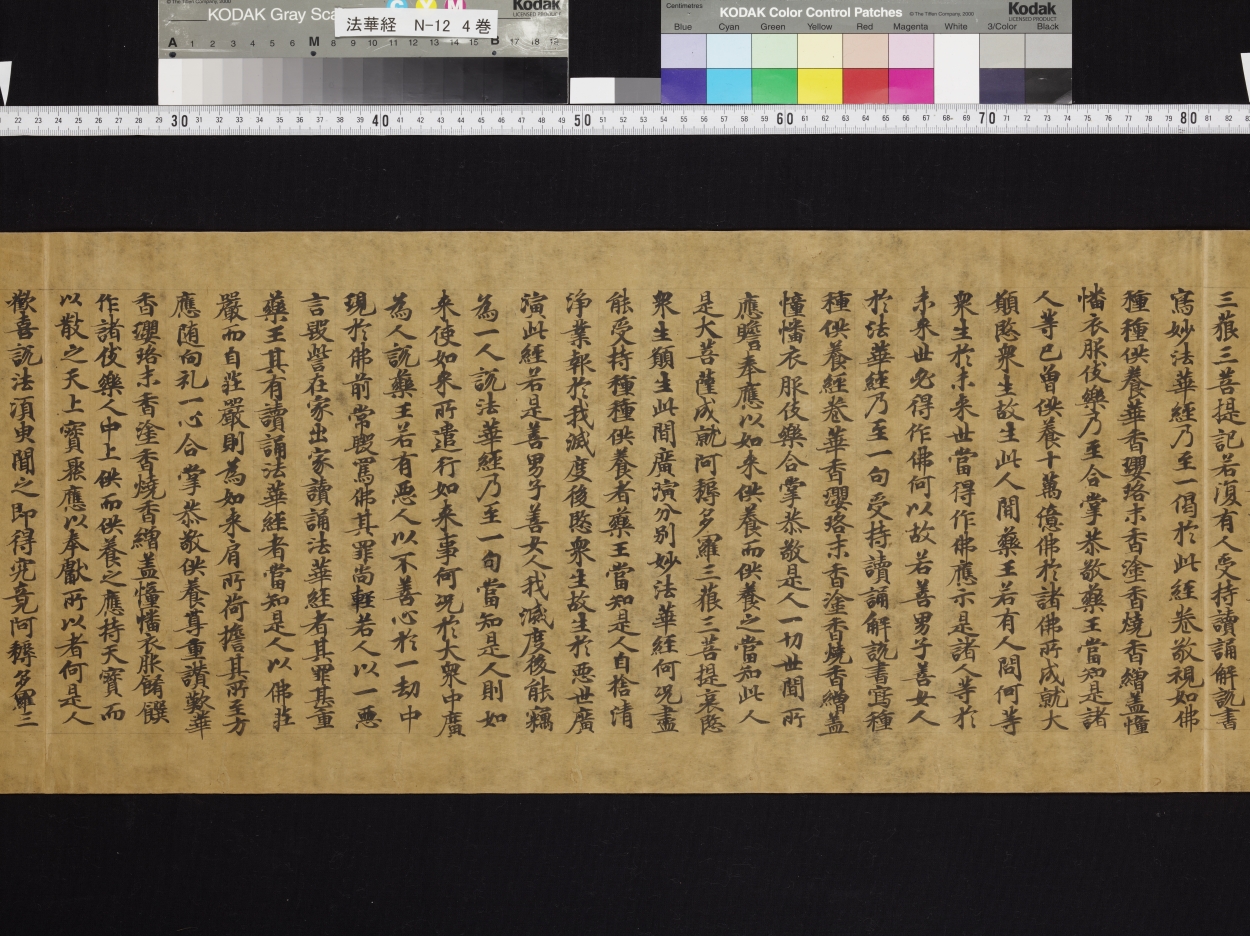 © The Tiffen Company, 2000
KODAK Gray Sca
C Y M
Kodak
LICENSED PRODUCT
法華経 N-12 4巻
A 1 2 3 4 5 6 M 8 9 10 11 12 13 14 15 B 17 18 19
Centimetres
KODAK Color Control Patches
© The Tiffen Company, 2000
Kodak
LICENSED PRODUCT
Blue Cyan Green Yellow Red Magenta White 3/Color Black
22 23 24 25 26 27 28 29 30 31 32 33 34 35 36 37 38 39 40 41 42 43 44 45 46 47 48 49 50 51 52 53 54 55 56 57 58 59 60 61 62 63 64 65 66 67 68 69 70 71 72 73 74 75 76 77 78 79 80 81 82
三藐三菩提記若復有人受持讀誦解說書
寫妙法華經乃至一偈於此經卷敬視如佛
種種供養華香瓔珞末香塗香燒香繒盖憧
幡衣服伎樂乃至合掌恭敬藥王當知是諸
人等已曾供養十萬億佛於諸佛所成就大
願愍衆生故生此人間藥王若有人問何等
衆生於未来世當得作佛應示是諸人等於
未来世必得作佛何以故若善男子善女人
於法華經乃至一句受持讀誦解說書寫種
種供養經卷華香瓔珞末香塗香燒香繒盖
憧幡衣服伎樂合掌恭敬是人一切世間所
應瞻奉應以如来供養而供養之當知此人
是大菩薩成就阿耨多羅三藐三菩提哀愍
衆生願生此間廣演分別妙法華經何况盡
能受持種種供養者藥王當知是人自捨清
淨業報於我滅度後愍衆生故生於惡世廣
演此經若是善男子善女人我滅度後能竊
為一人說法華經乃至一句當知是人則如
来使如来所遣行如来事何况於大衆中廣
為人說藥王若有惡人以不善心於一劫中
現於佛前常毀罵佛其罪尚輕若人以一惡
言毀呰在家出家讀誦法華經者其罪甚重
藥王其有讀誦法華經者當知是人以佛莊
嚴而自莊嚴則為如来肩所荷擔其所至方
應随向礼一心合掌恭敬供養尊重讃歎華
香瓔珞末香塗香燒香繒盖憧幡衣服餚饌
作諸伎樂人中上供而供養之應持天寶而
以散之天上寶聚應以奉獻所以者何是人
歡喜說法須臾聞之即得究竟阿耨多羅三